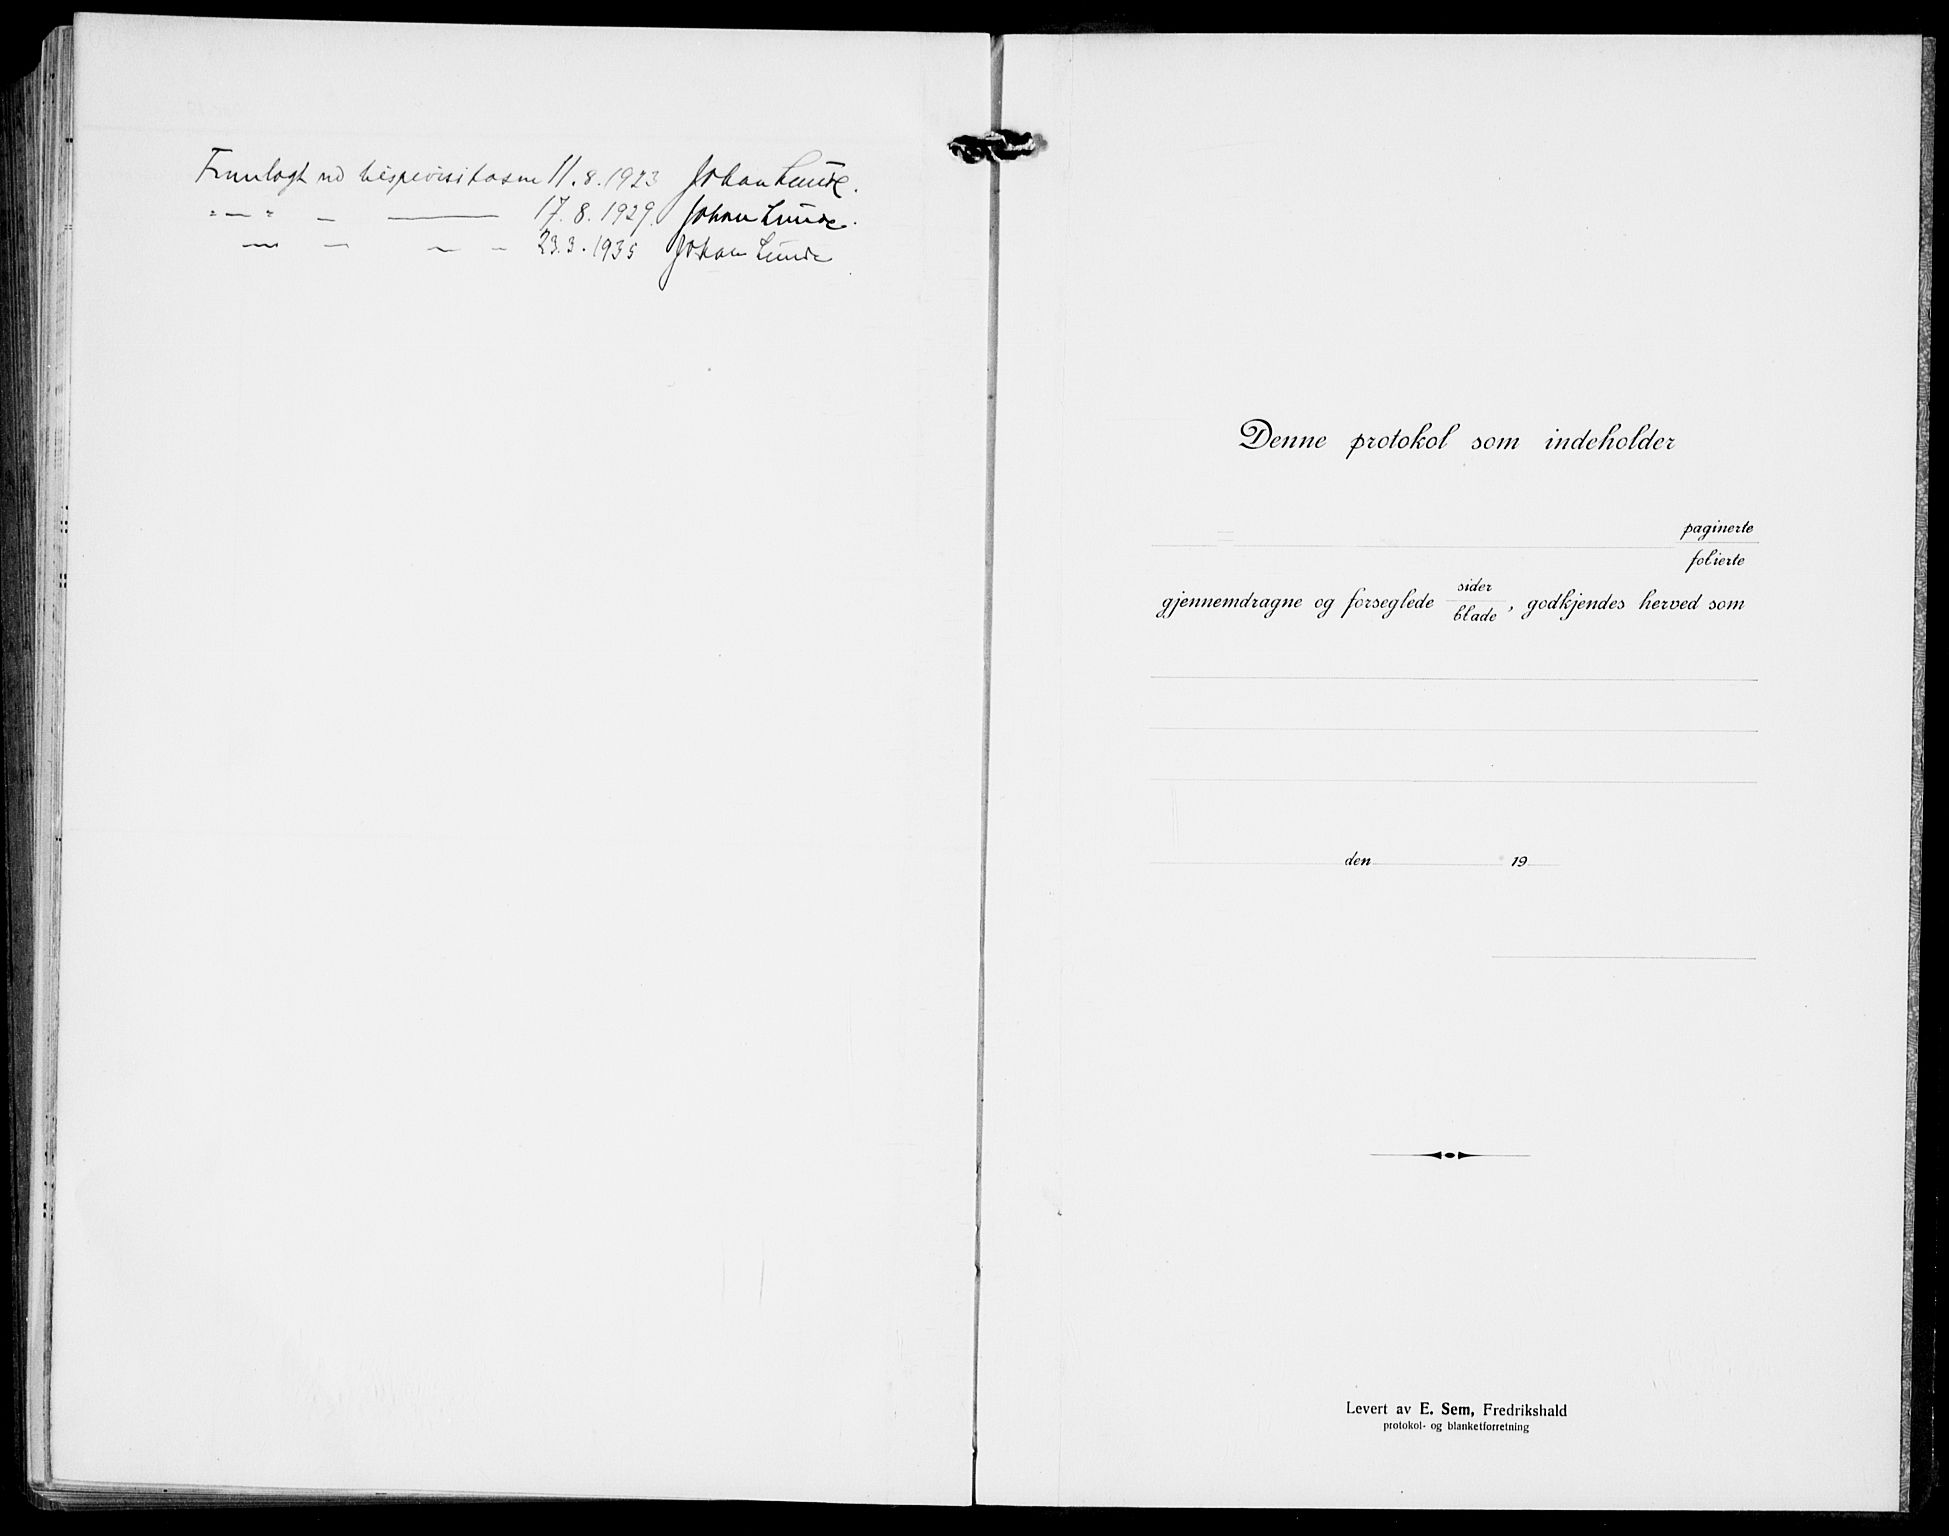 Fremlagt ved bispevisitasen 11.8.1923 Johan Lunde.
" — " — — 17.8.1929. Johan Lunde.
— — — — 23.3.1935 Johan Lunde
Denne protokol som indeholder
paginerte
folierte
gjennemdragne og forseglede sider/blade, godkjendes herved som
den 19
Levert av E. Sem, Fredrikshald
protokol- og blanketforretning